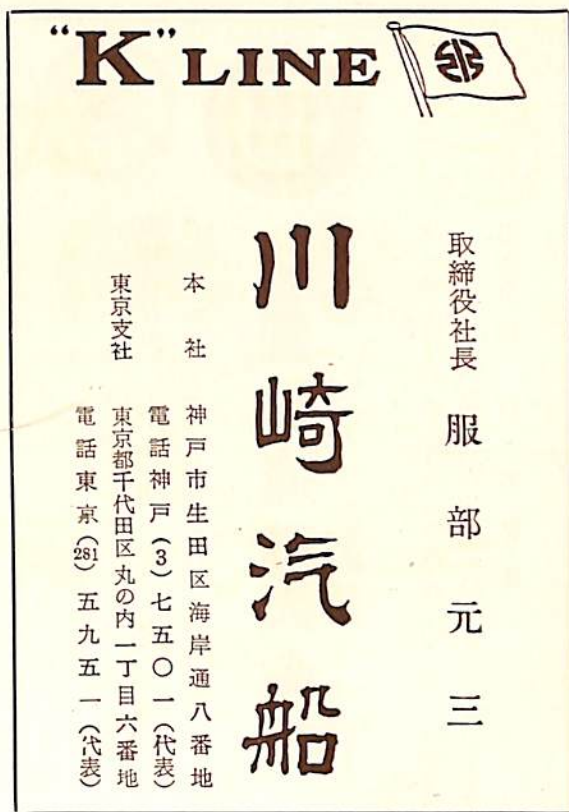 "K" LINE
取締役社長 服部元三
川崎汽船
本社 神戸市生田区海岸通八番地
電話神戸(3)七五〇一(代表)
東京支社 東京都千代田区丸の内一丁目六番地
電話東京(281)五九五一(代表)